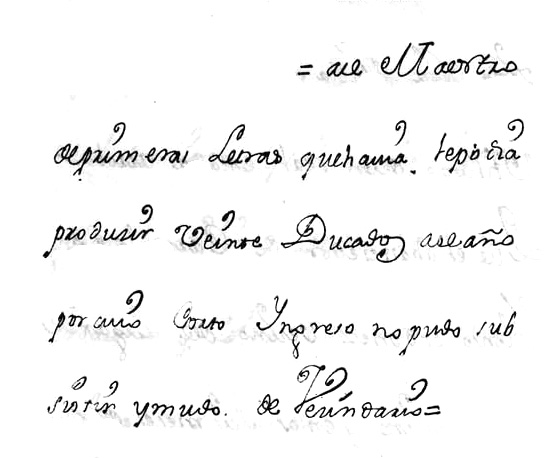 = ale Maestro
deprimeras Letras quehavia. lepodia
produzir Veinte Ducados aleaño
por cuio Corto Yngreso nopudo sub
sistir ymudo. de Vecindario=